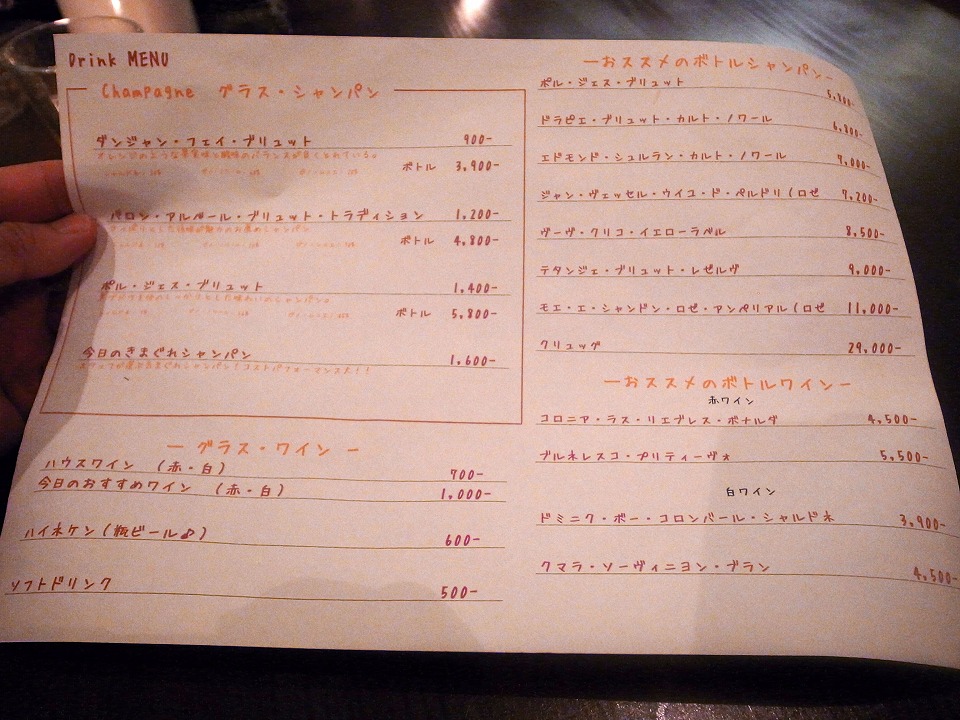 Drink MENU
Champagne グラス・シャンパン
ダンジャン・フェイ・ブリュット 900-
オレンジのような果実味と酸味のバランスが良くとれている。
ボトル 3,900-
バロン・アルベール・ブリュット・トラディション 1,200-
ボトル 4,800-
ポル・ジェス・ブリュット 1,400-
ボトル 5,800-
今日のきまぐれシャンパン 1,600-
スタッフが選ぶきまぐれシャンパン!コストパフォーマンス大!!
— グラス・ワイン —
ハウスワイン (赤・白) 700-
今日のおすすめワイン (赤・白) 1,000-
ハイネケン(瓶ビール♪) 600-
ソフトドリンク 500-
—おススメのボトルシャンパン—
ポル・ジェス・ブリュット 5,800-
ドラピエ・ブリュット・カルト・ノワール 6,800-
エドモンド・シュルラン・カルト・ノワール 7,000-
ジャン・ヴェッセル・ウイユ・ド・ペルドリ(ロゼ 7,200-
ヴーヴ・クリコ・イエローラベル 8,500-
テタンジェ・ブリュット・レゼルヴ 9,000-
モエ・エ・シャンドン・ロゼ・アンペリアル(ロゼ 11,000-
クリュッグ 29,000-
—おススメのボトルワイン—
赤ワイン
コロニア・ラス・リエブレス・ボナルダ 4,500-
ブルネレスコ・プリティーヴォ 5,500-
白ワイン
ドミニク・ボー・コロンバール・シャルドネ 3,900-
クマラ・ソーヴィニヨン・ブラン 4,500-